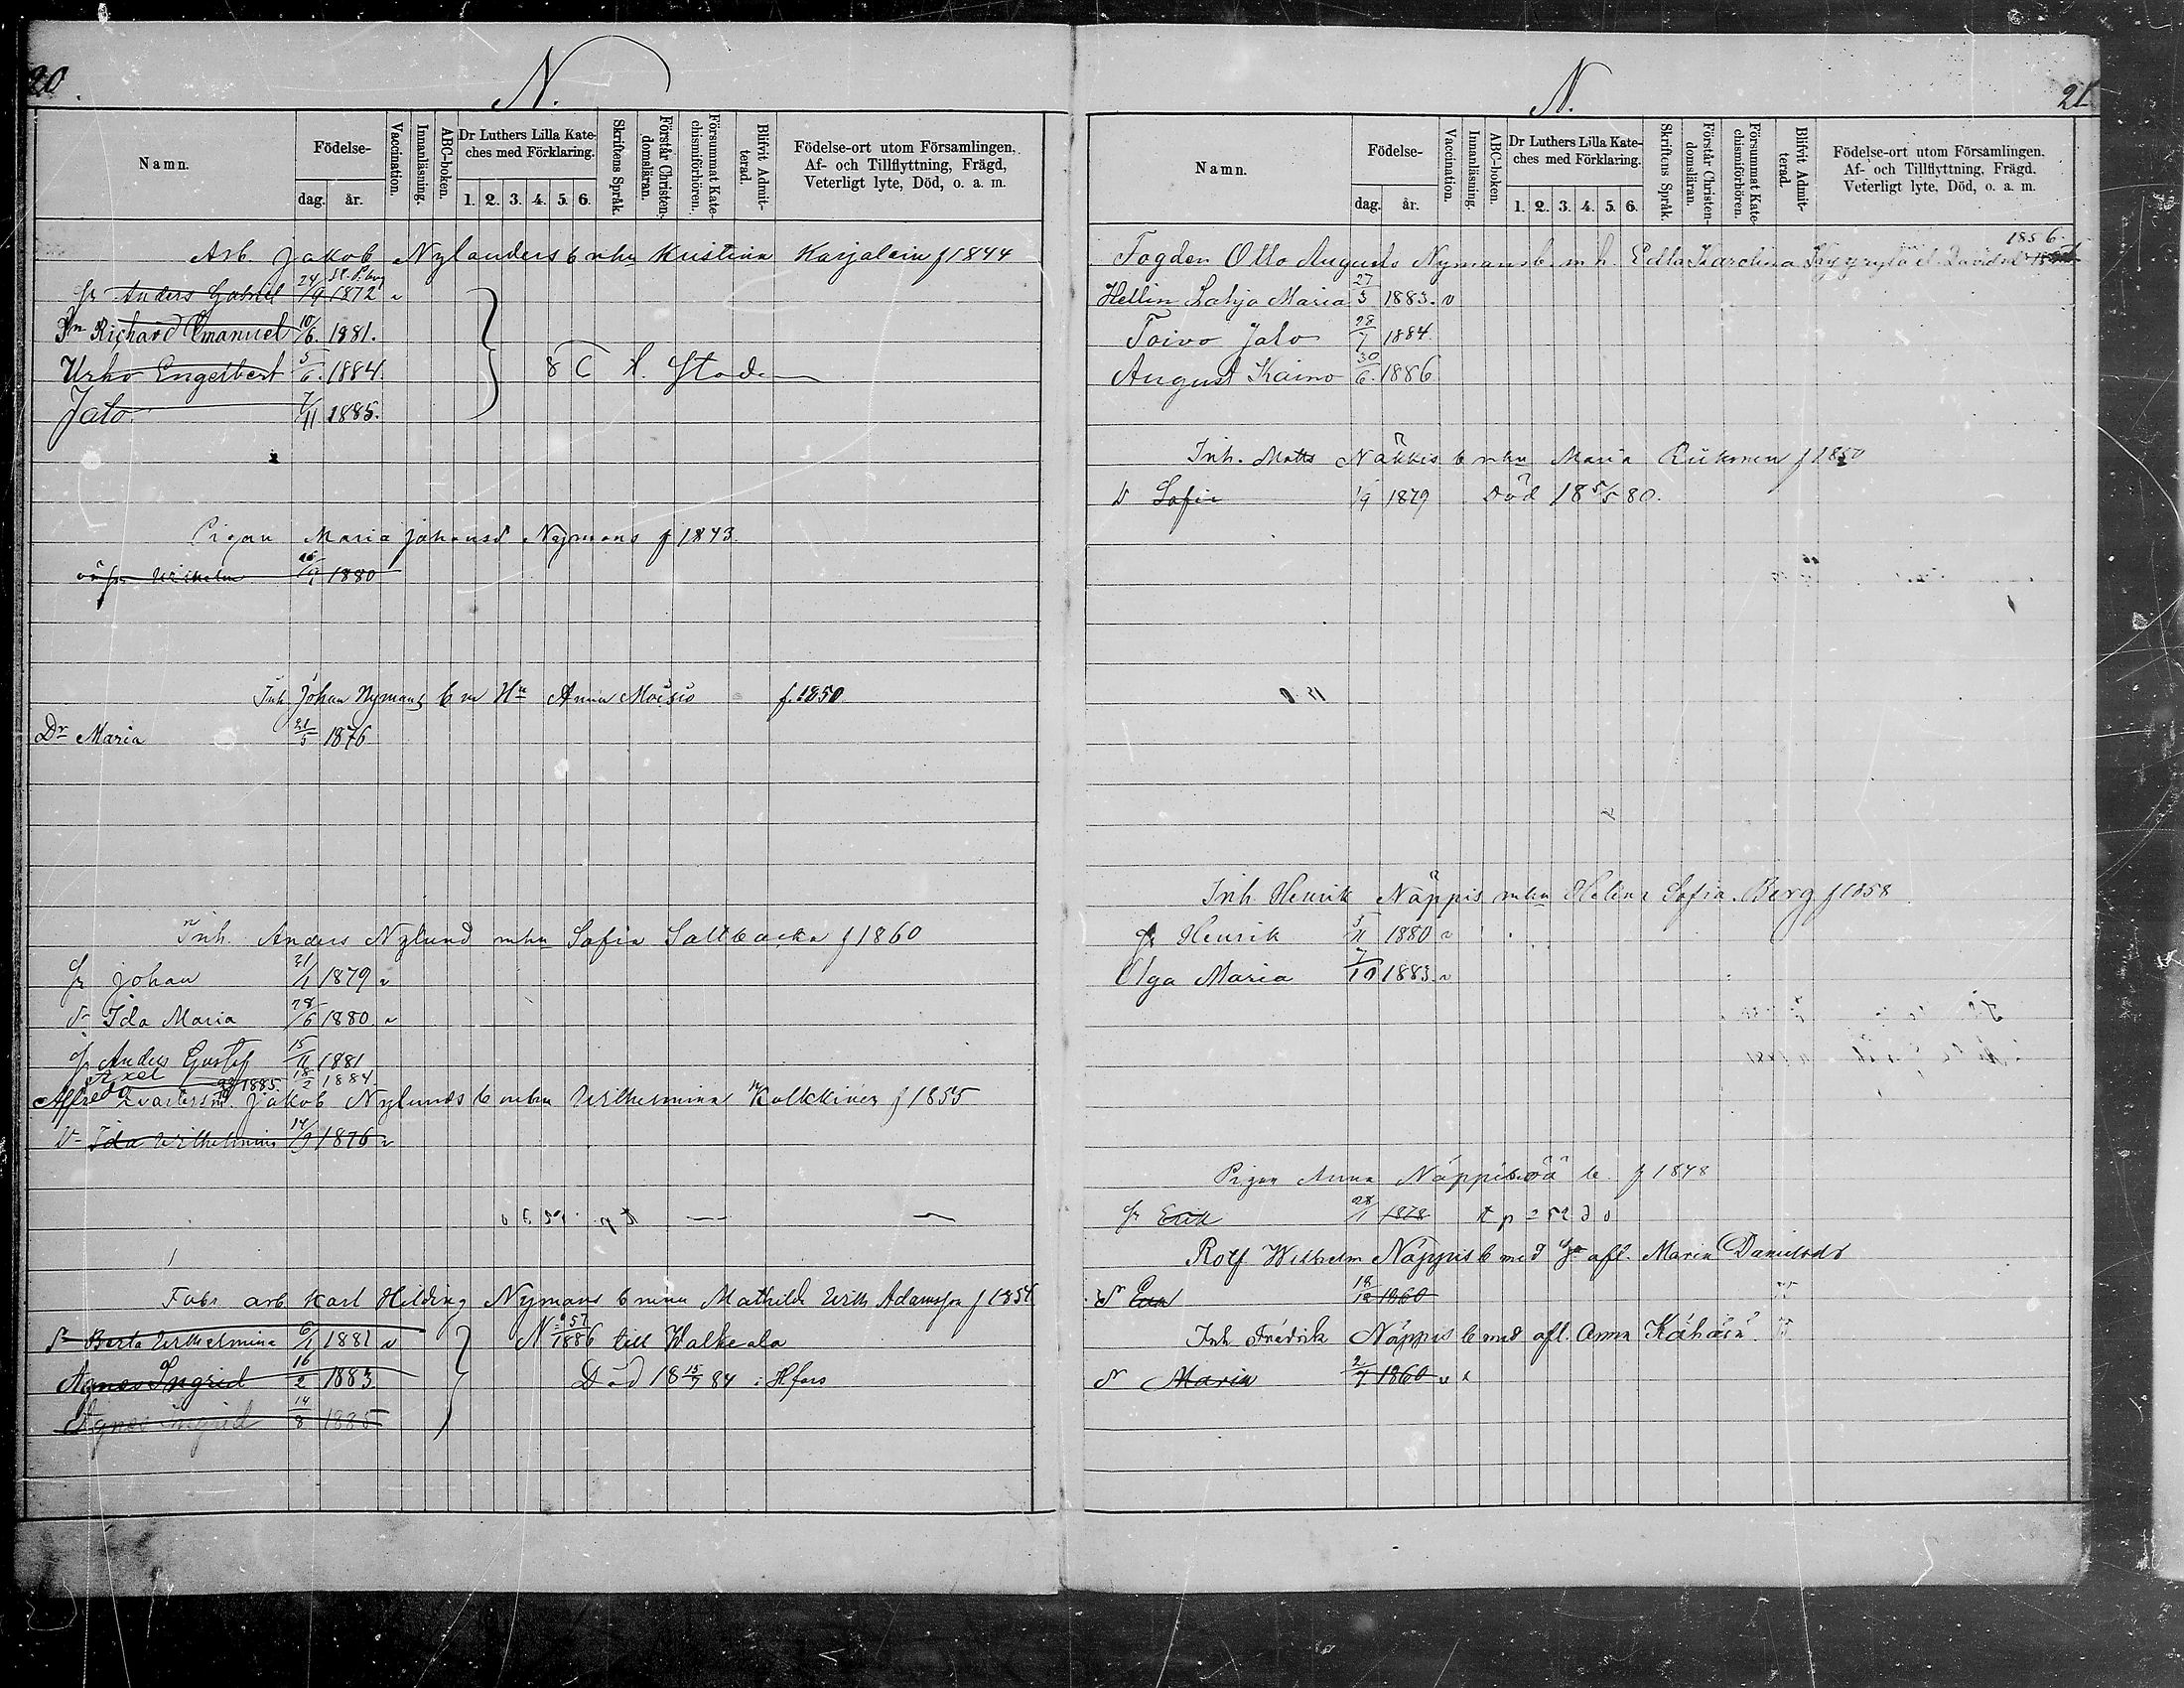 20
N.
Namn.
Födelse-
dag.
år.
Vaccination.
Innanläsning.
ABC-boken.
Dr Luthers Lilla Kate-
ches med Förklaring.
1. 2. 3. 4. 5. 6.
Skriftens Språk.
Förstår Christen-
domsläran.
Försummat Kate-
chismiförhören.
Blifvit Admit-
terad.
Födelse-ort utom Församlingen,
Af- och Tillflyttning, Frägd,
Veterligt lyte, Död, o. a. m.
Arb. Jakob Nylanders b mhu Kristina Karjalain f 1844
Anders Gabriel 24/9 1872 v
Richard Emanuel 10/6. 1881.
Urho Engelbert 5/6. 1884.
Jalo 7/11 1885.
Pigan Maria Johansd Nymans f 1843.
1880
Inh. Johan Nymans b m Hu Anna Moisio f. 1850.
Dr Maria 21/5 1876
Inh. Anders Nylund mhu Sofia Saltbacka f 1860
Johan 21/1 1879 v
Ida Maria 28/6 1880 v
Anders Gustaf 15/11 1881
Axel 18/2 1884
Alfred 1885.
Jakob Nylunds b mhu Wilhelmina Kolkkinen f 1855
Ida Wilhelmina 14/9 1876 v
Fabr arb Karl Hilding Nymans b mhu Mathilda Wilh Adamsson f 1854
Berta Wilhelmina 6/1 1881 v
N 57 1886 till Walkeala
Agnes Ingrid 16/2 1883
Död 18 15/7 84 i Hfors
Agnes Ingrid 14/8 1885
21
N.
Namn.
Födelse-
dag.
år.
Vaccination.
Innanläsning.
ABC-boken.
Dr Luthers Lilla Kate-
ches med Förklaring.
1. 2. 3. 4. 5. 6.
Skriftens Språk.
Förstår Christen-
domsläran.
Försummat Kate-
chismiförhören.
Blifvit Admit-
terad.
Födelse-ort utom Församlingen,
Af- och Tillflyttning, Frägd,
Veterligt lyte, Död, o. a. m.
1856.
Fogden Otto Augusts Nymans b. m. h. Edla Karolina
Hellin Lahja Maria 27/3 1883. v
Toivo Jalo 28/7 1884.
August Kaino 30/6. 1886
Inh. Matts Näkkis b mhu Maria Riikonen f 1850
Sofia 1/9 1879 Död 18 5/5 80.
Inh. Henrik Näppis mhu Helena Sofia Berg f 1858
Henrik 5/11 1880 v
Olga Maria 7/10 1883. v
Pigan Anna f 1848
Erik 28/1 1878
Rolf Wilhelm Näppis b med afl. Maria Danielsdr
18/12 1860
Inh Fredrik Näppis b med afl. Anna Kähäri
Maria 2/4 1860 v x